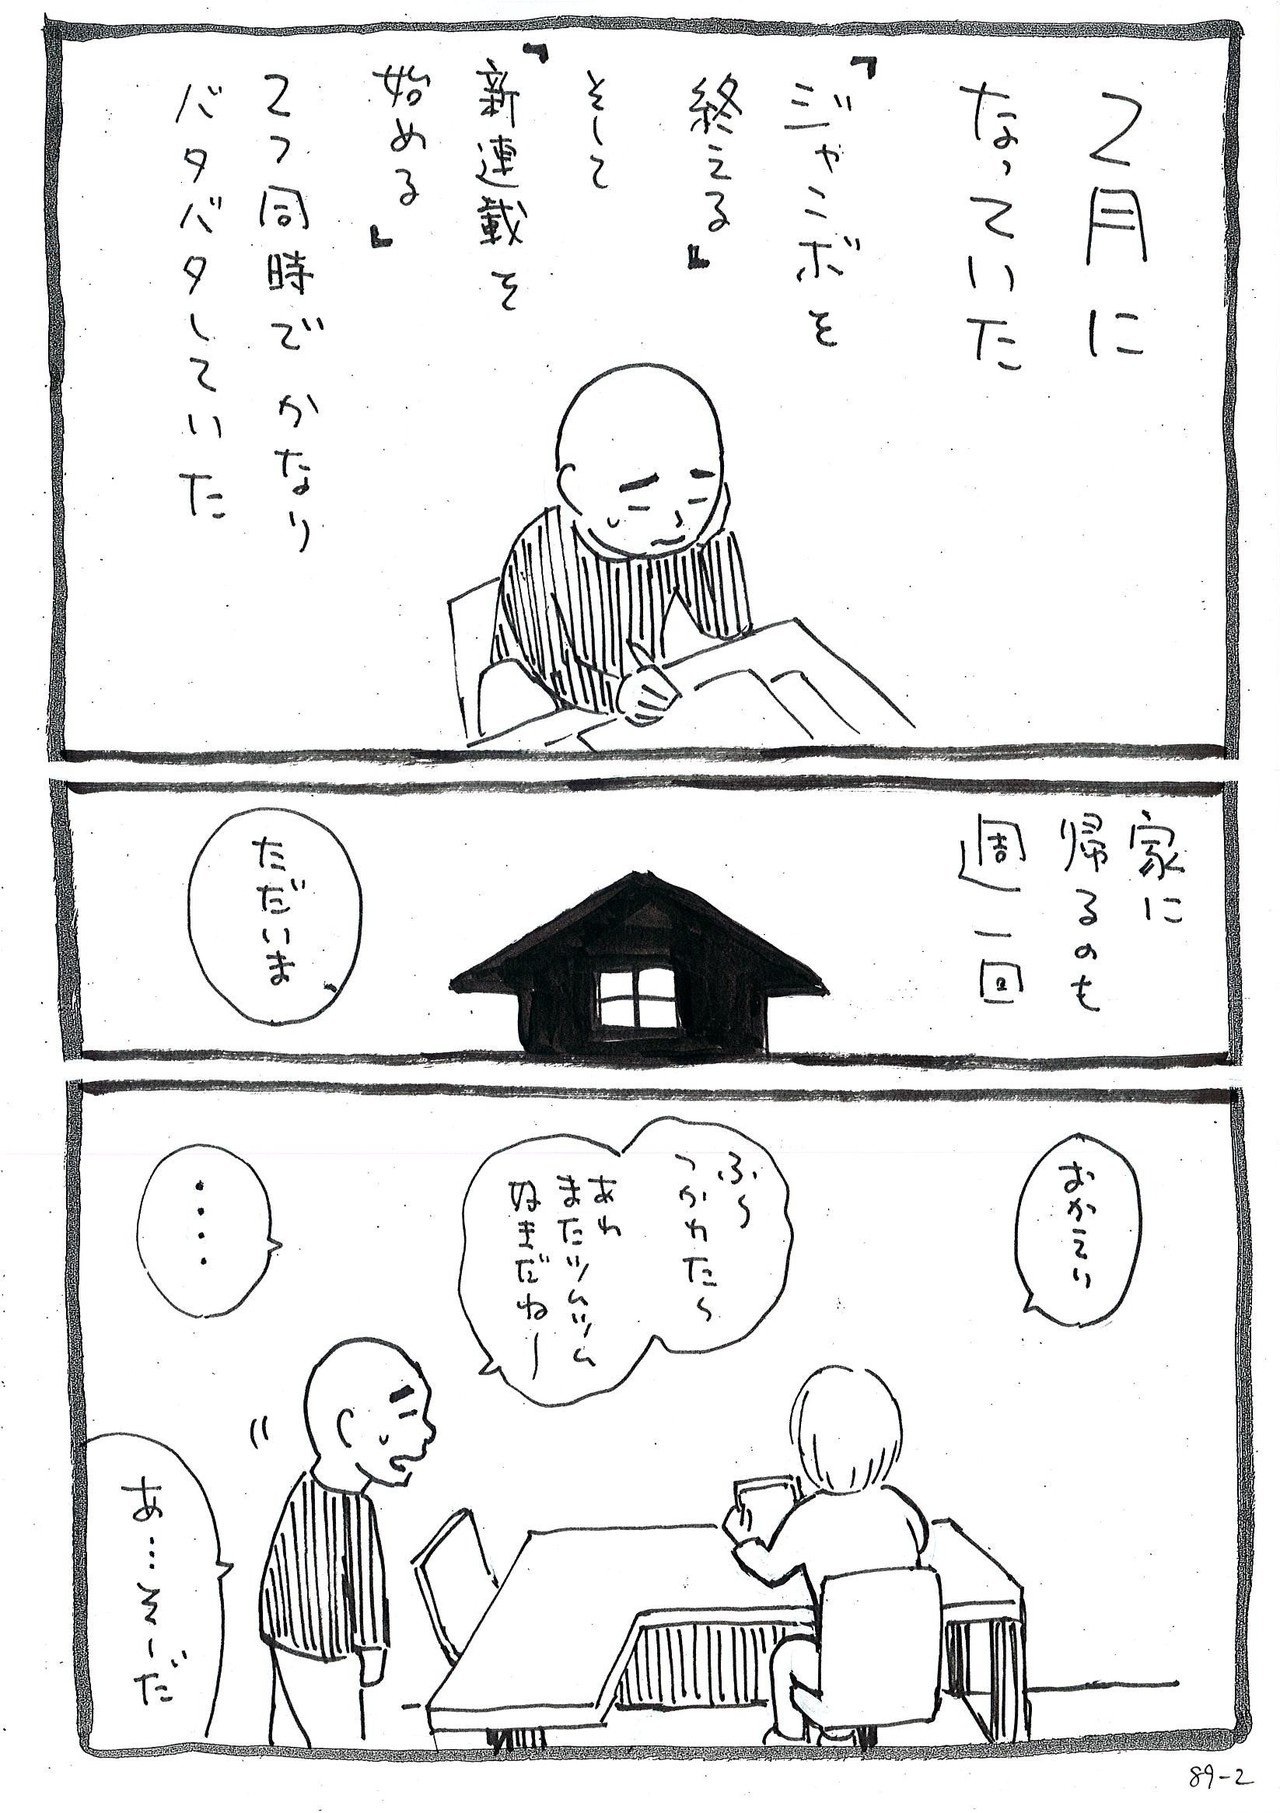 2月に
なっていた
『ジャンボを
終える』
そして
『新連載を
始める』
2つ同時でかなり
バタバタしていた
家に
帰るのも
週一回
ただいま
おかえり
ふ〜
つかれた〜
あれ
またツムツム
ぬきだねー
・・・・
あ…そーだ
89-2